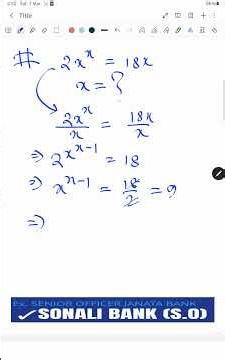 Title
# 2x^x = 18x
x = ?
2x^x/x = 18x/x
⇒ 2^x^x-1 = 18
⇒ x^x-1 = 18/2 = 9
⇒
Ex. SENIOR OFFICER JANATA BANK
✓SONALI BANK (S.O)